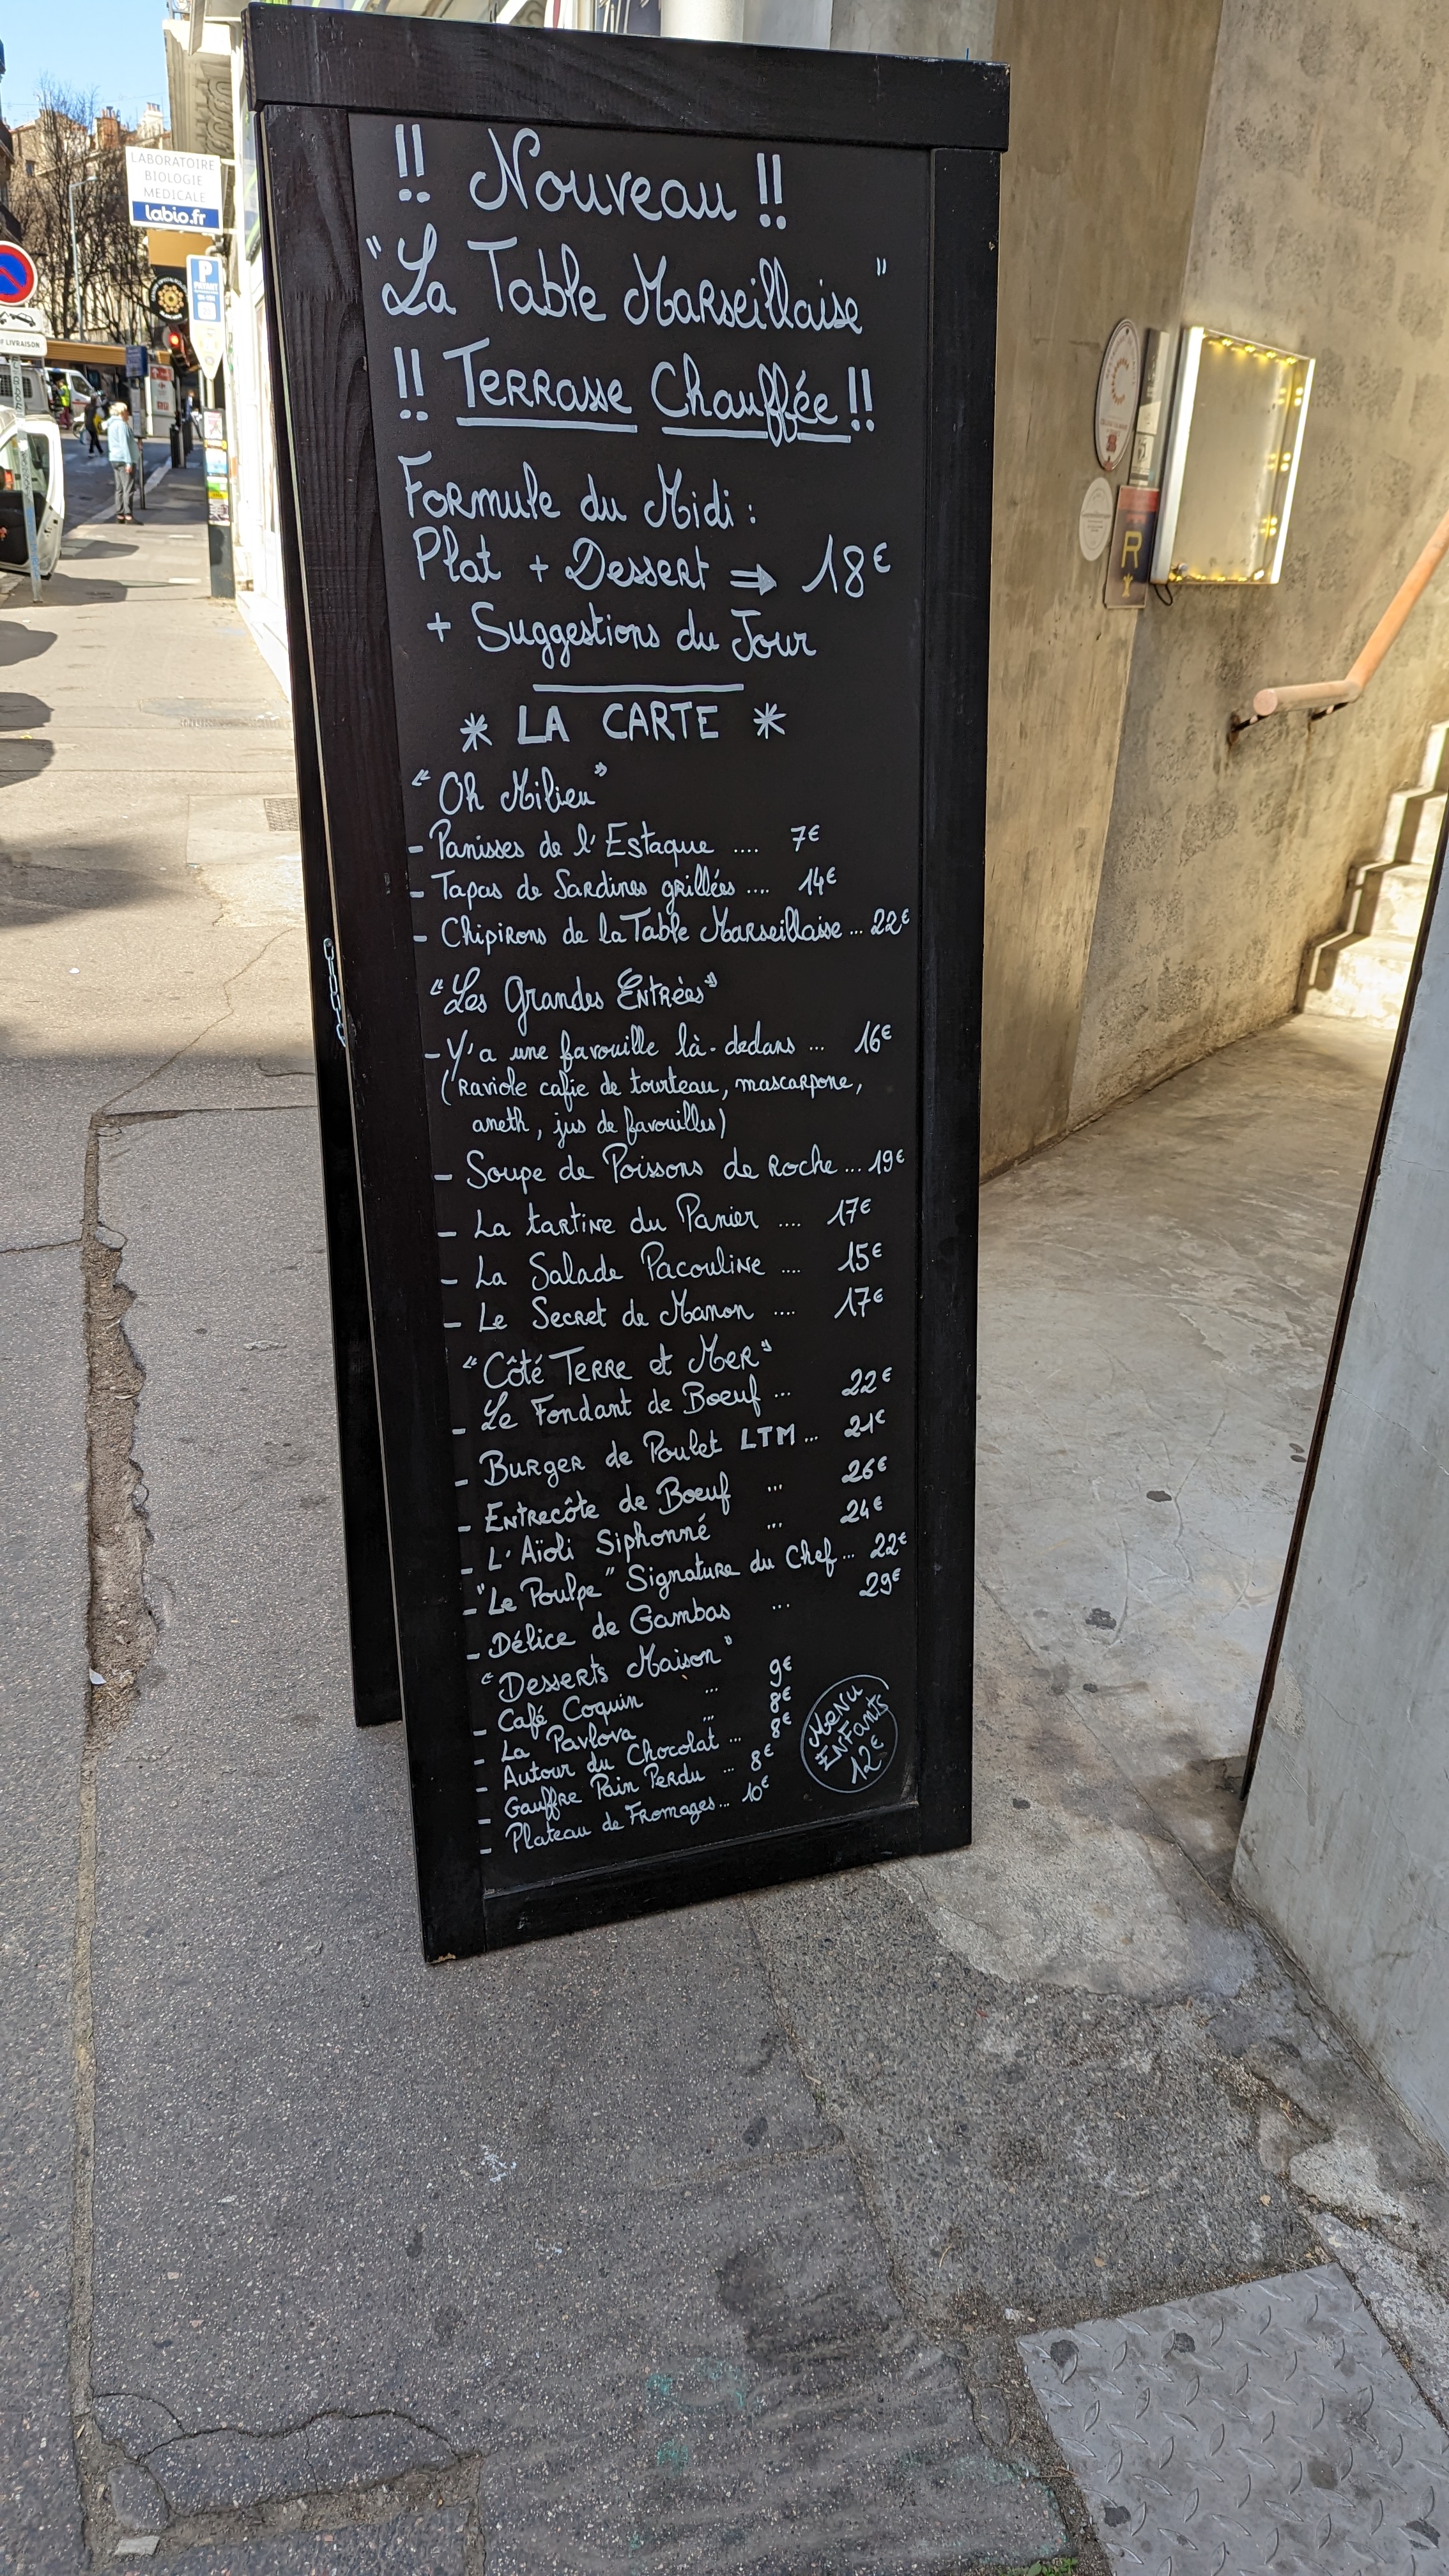 !! Nouveau !!
"La Table Marseillaise"
!! Terrasse Chauffée !!
Formule du Midi :
Plat + Dessert ⇒ 18€
+ Suggestions du Jour
* LA CARTE *
"Oh Milieu"
- Panisses de l'Estaque .... 7€
- Tapas de Sardines grillées .... 14€
- Chipirons de la Table Marseillaise ... 22€
"Les Grandes Entrées"
- Y'a une favouille là-dedans ... 16€
(raviole cafie de tourteau, mascarpone,
aneth, jus de favouilles)
- Soupe de Poissons de Roche ... 19€
- La tartine du Panier .... 17€
- La Salade Pacouline .... 15€
- Le Secret de Manon .... 17€
"Côté Terre et Mer"
- Le Fondant de Boeuf ... 22€
- Burger de Poulet LTM ... 21€
- Entrecôte de Boeuf ... 26€
- L'Aïoli Siphonné ... 24€
- "Le Poulpe" Signature du Chef ... 22€
- Délice de Gambas ... 29€
"Desserts Maison"
- Café Coquin ... 9€
- La Pavlova ... 8€
- Autour du Chocolat ... 8€
- Gauffre Pain Perdu ... 8€
- Plateau de Fromages ... 10€
Menu
Enfants
12€
LABORATOIRE
BIOLOGIE
MEDICALE
labio.fr
P
LIVRAISON
R